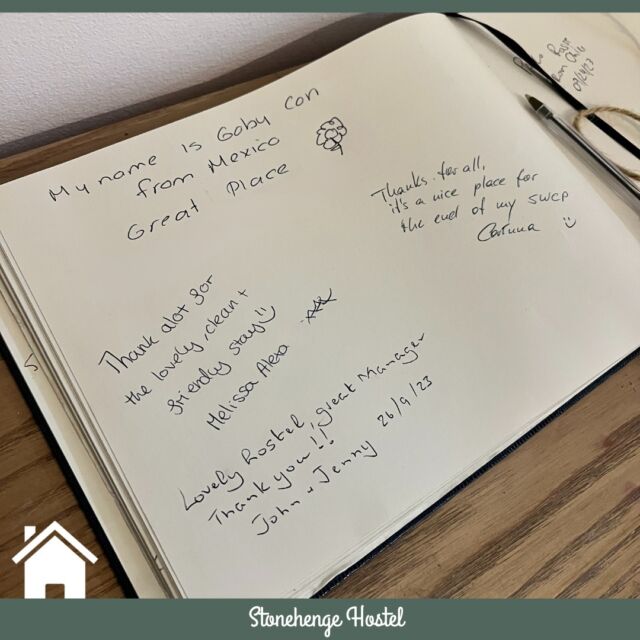 My name is Goby Con
from Mexico
Great Place
Thanks for all,
it's a nice place for
the end of my SWCP
Thank alot for
the lovely, clean +
friendly stay
Melissa Alexa
Lovely hostel, great Manager
Thank you!!
John + Jenny 26/9/23
Stonehenge Hostel